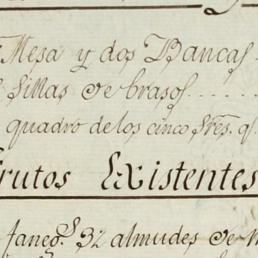 Mesa y dos Bancas
sillas de brasos ......
quadro de los cinco Sres. q.
frutos Existentes
faneg.s 32 almudes de